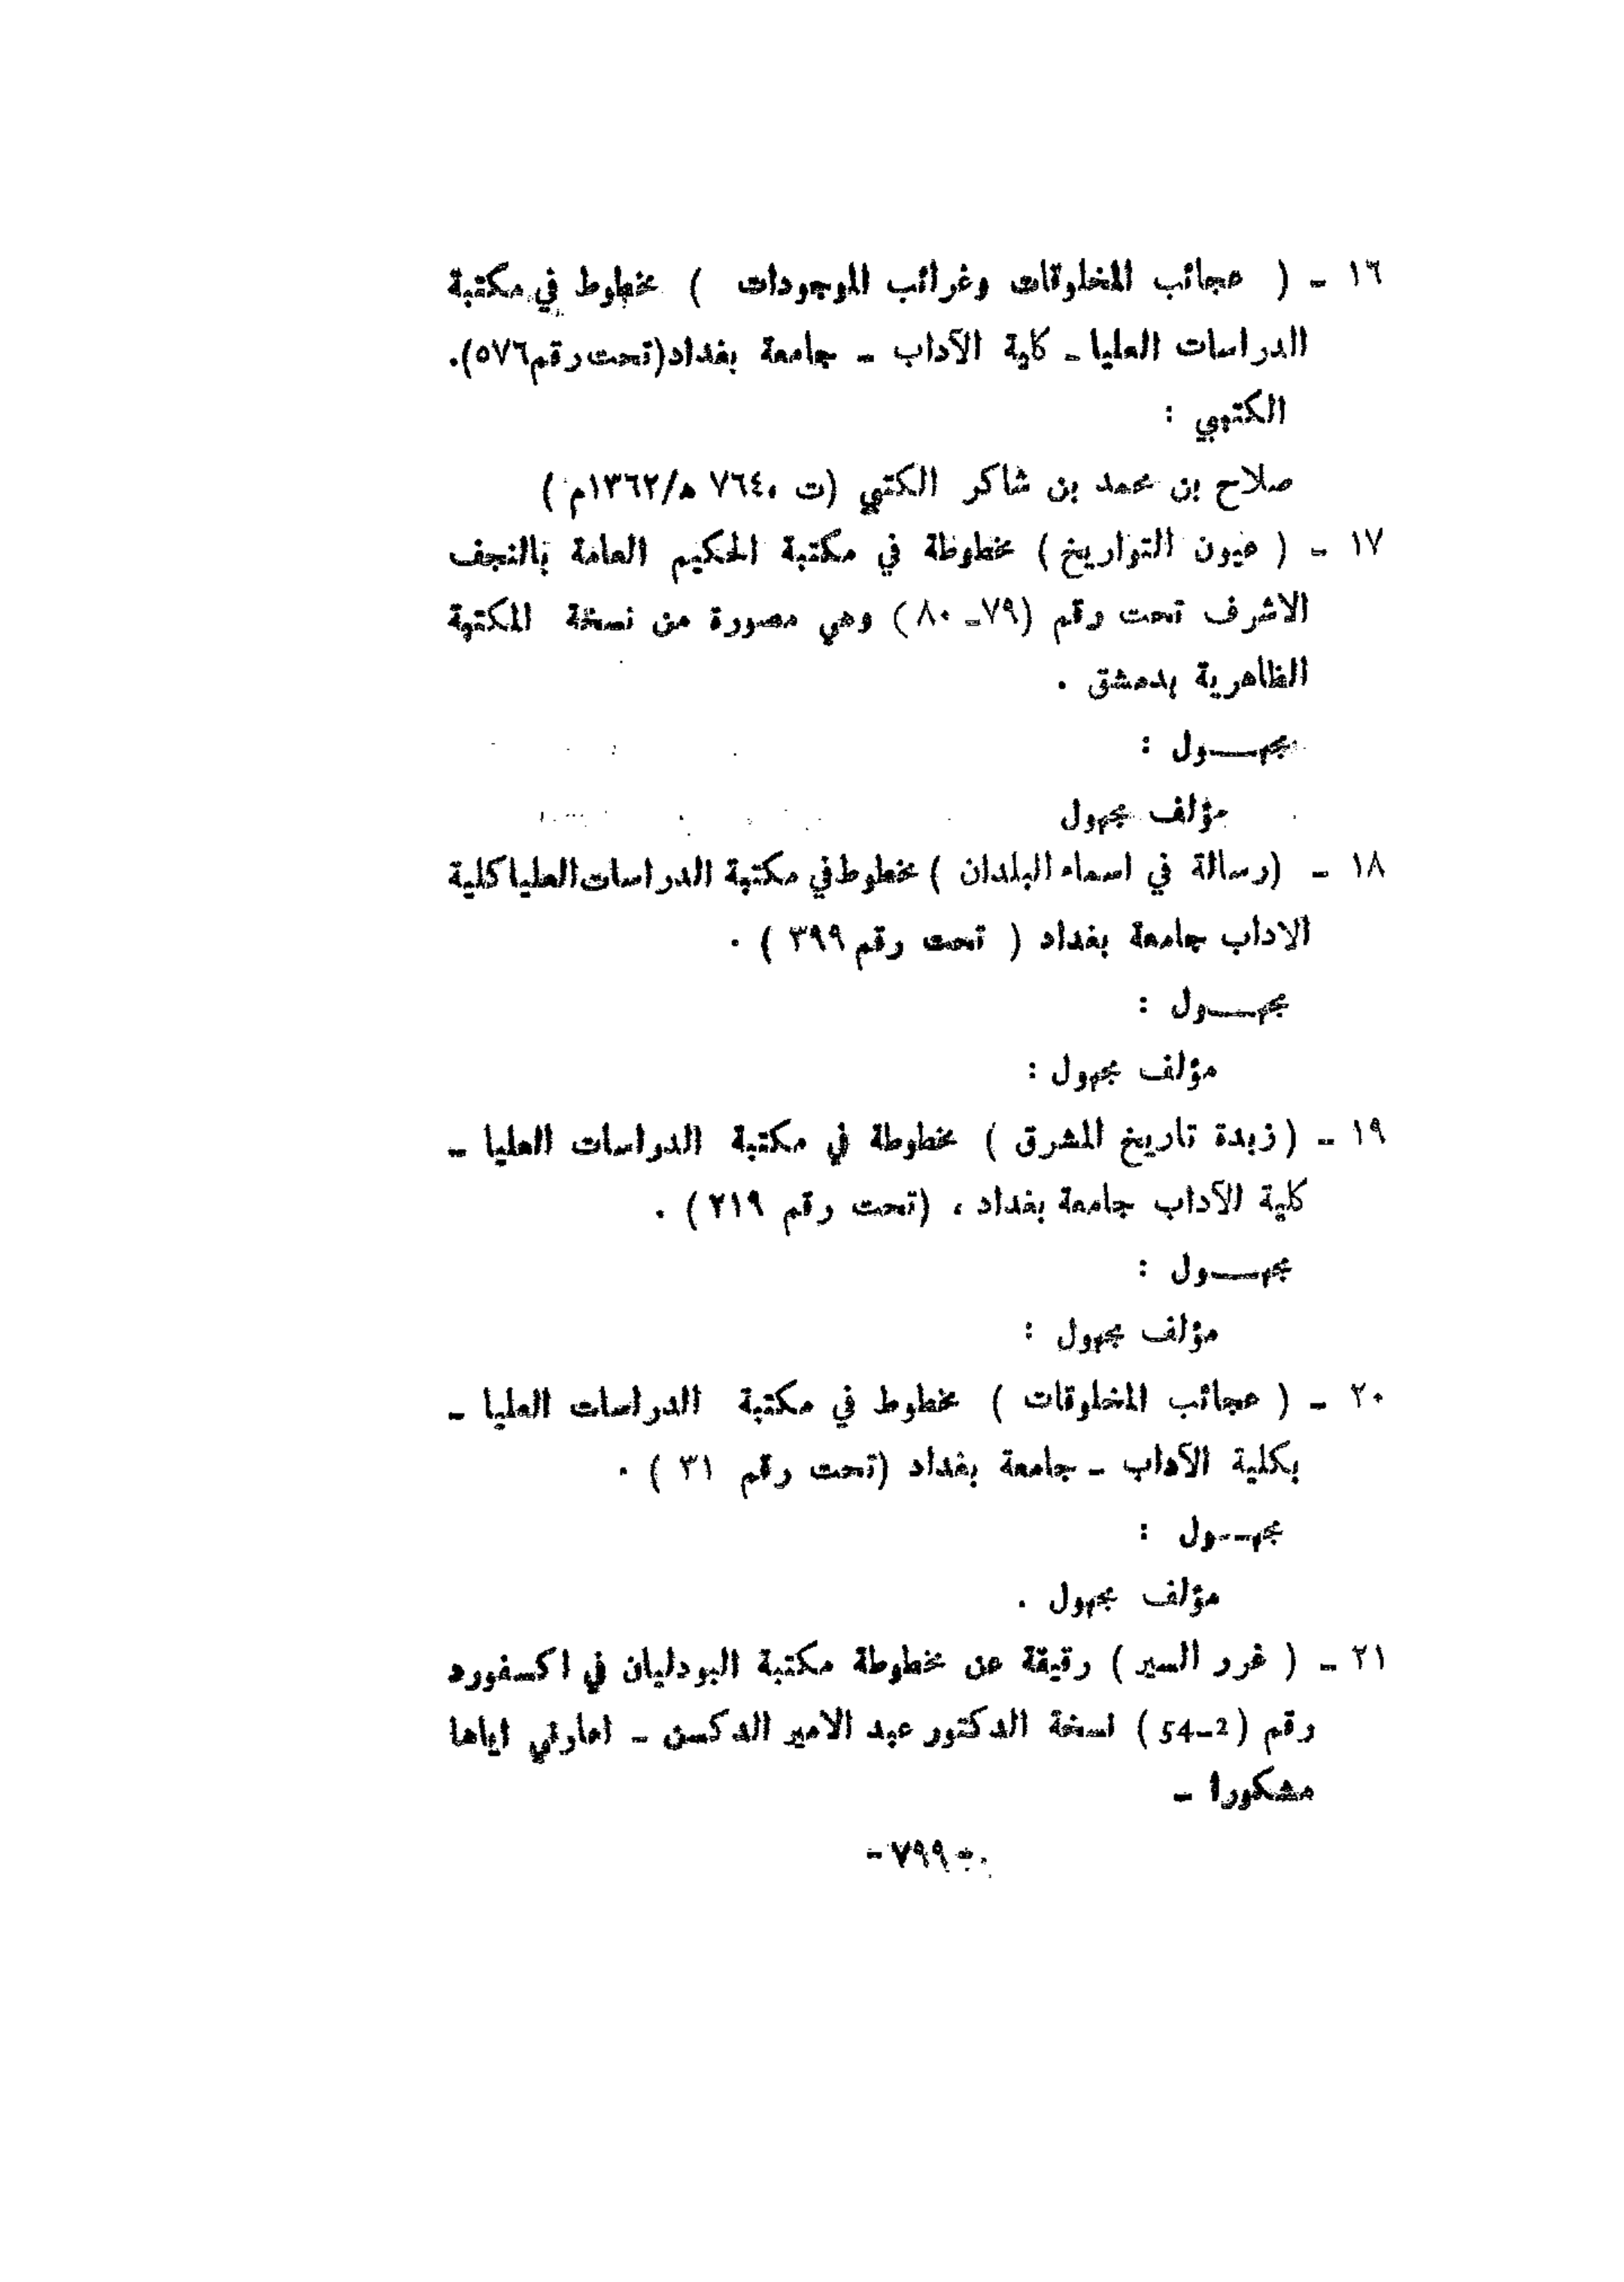 ١٦ - ( عجائب المخلوقات وغرائب الموجودات ) مخطوط في مكتبة
الدراسات العليا - كلية الآداب - جامعة بغداد(تحت رقم٥٧٦).
الكتبي :
صلاح بن محمد بن شاكر الكتبي (ت ٧٦٤٠ ه/١٣٦٢م )
١٧ - ( عيون التواريخ ) مخطوطة في مكتبة الحكيم العامة بالنجف
الاشرف تحت رقم (٧٩-٨٠ ) وهي مصورة من نسخة المكتبة
الظاهرية بدمشق .
مجهـــول :
مؤلف مجهول
١٨ - (رسالة في اسماء البلدان ) مخطوط في مكتبة الدراسات العليا كلية
الاداب جامعة بغداد ( تحت رقم ٣٩٩ ) .
مجهـــول :
مؤلف مجهول :
١٩ - ( زبدة تاريخ المشرق ) مخطوطة في مكتبة الدراسات العليا -
كلية الآداب جامعة بغداد ، (تحت رقم ٢١٩ ) .
مجهـــول :
مؤلف مجهول :
٢٠ - ( عجائب المخلوقات ) مخطوط في مكتبة الدراسات العليا -
بكلية الآداب - جامعة بغداد (تحت رقم ٣١ ) .
مجهـــول :
مؤلف مجهول .
٢١ - ( غرر السير ) رقيقة عن مخطوطة مكتبة البودليان في اكسفورد
رقم (2-54 ) نسخة الدكتور عبد الامير الدكسن - اعارني اياها
مشكورا -
- ٧٩٩ -